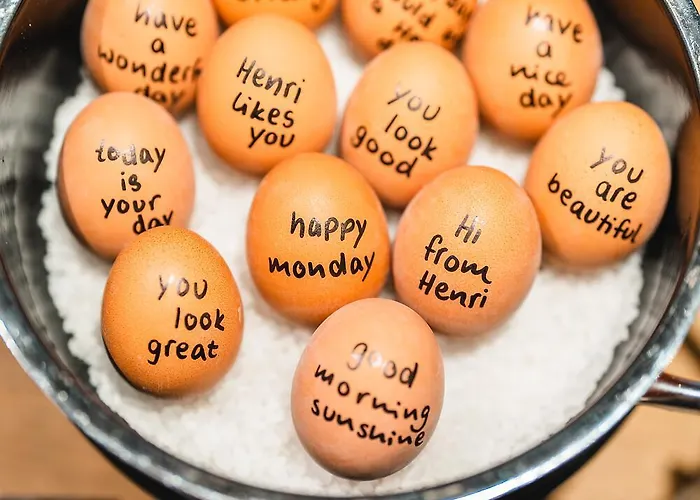 have
a
wonderf
day
Henri
likes
you
you
look
good
have
a
nice
day
today
is
your
day
happy
monday
Hi
from
Henri
you
are
beautiful
you
look
great
good
morning
sunshine